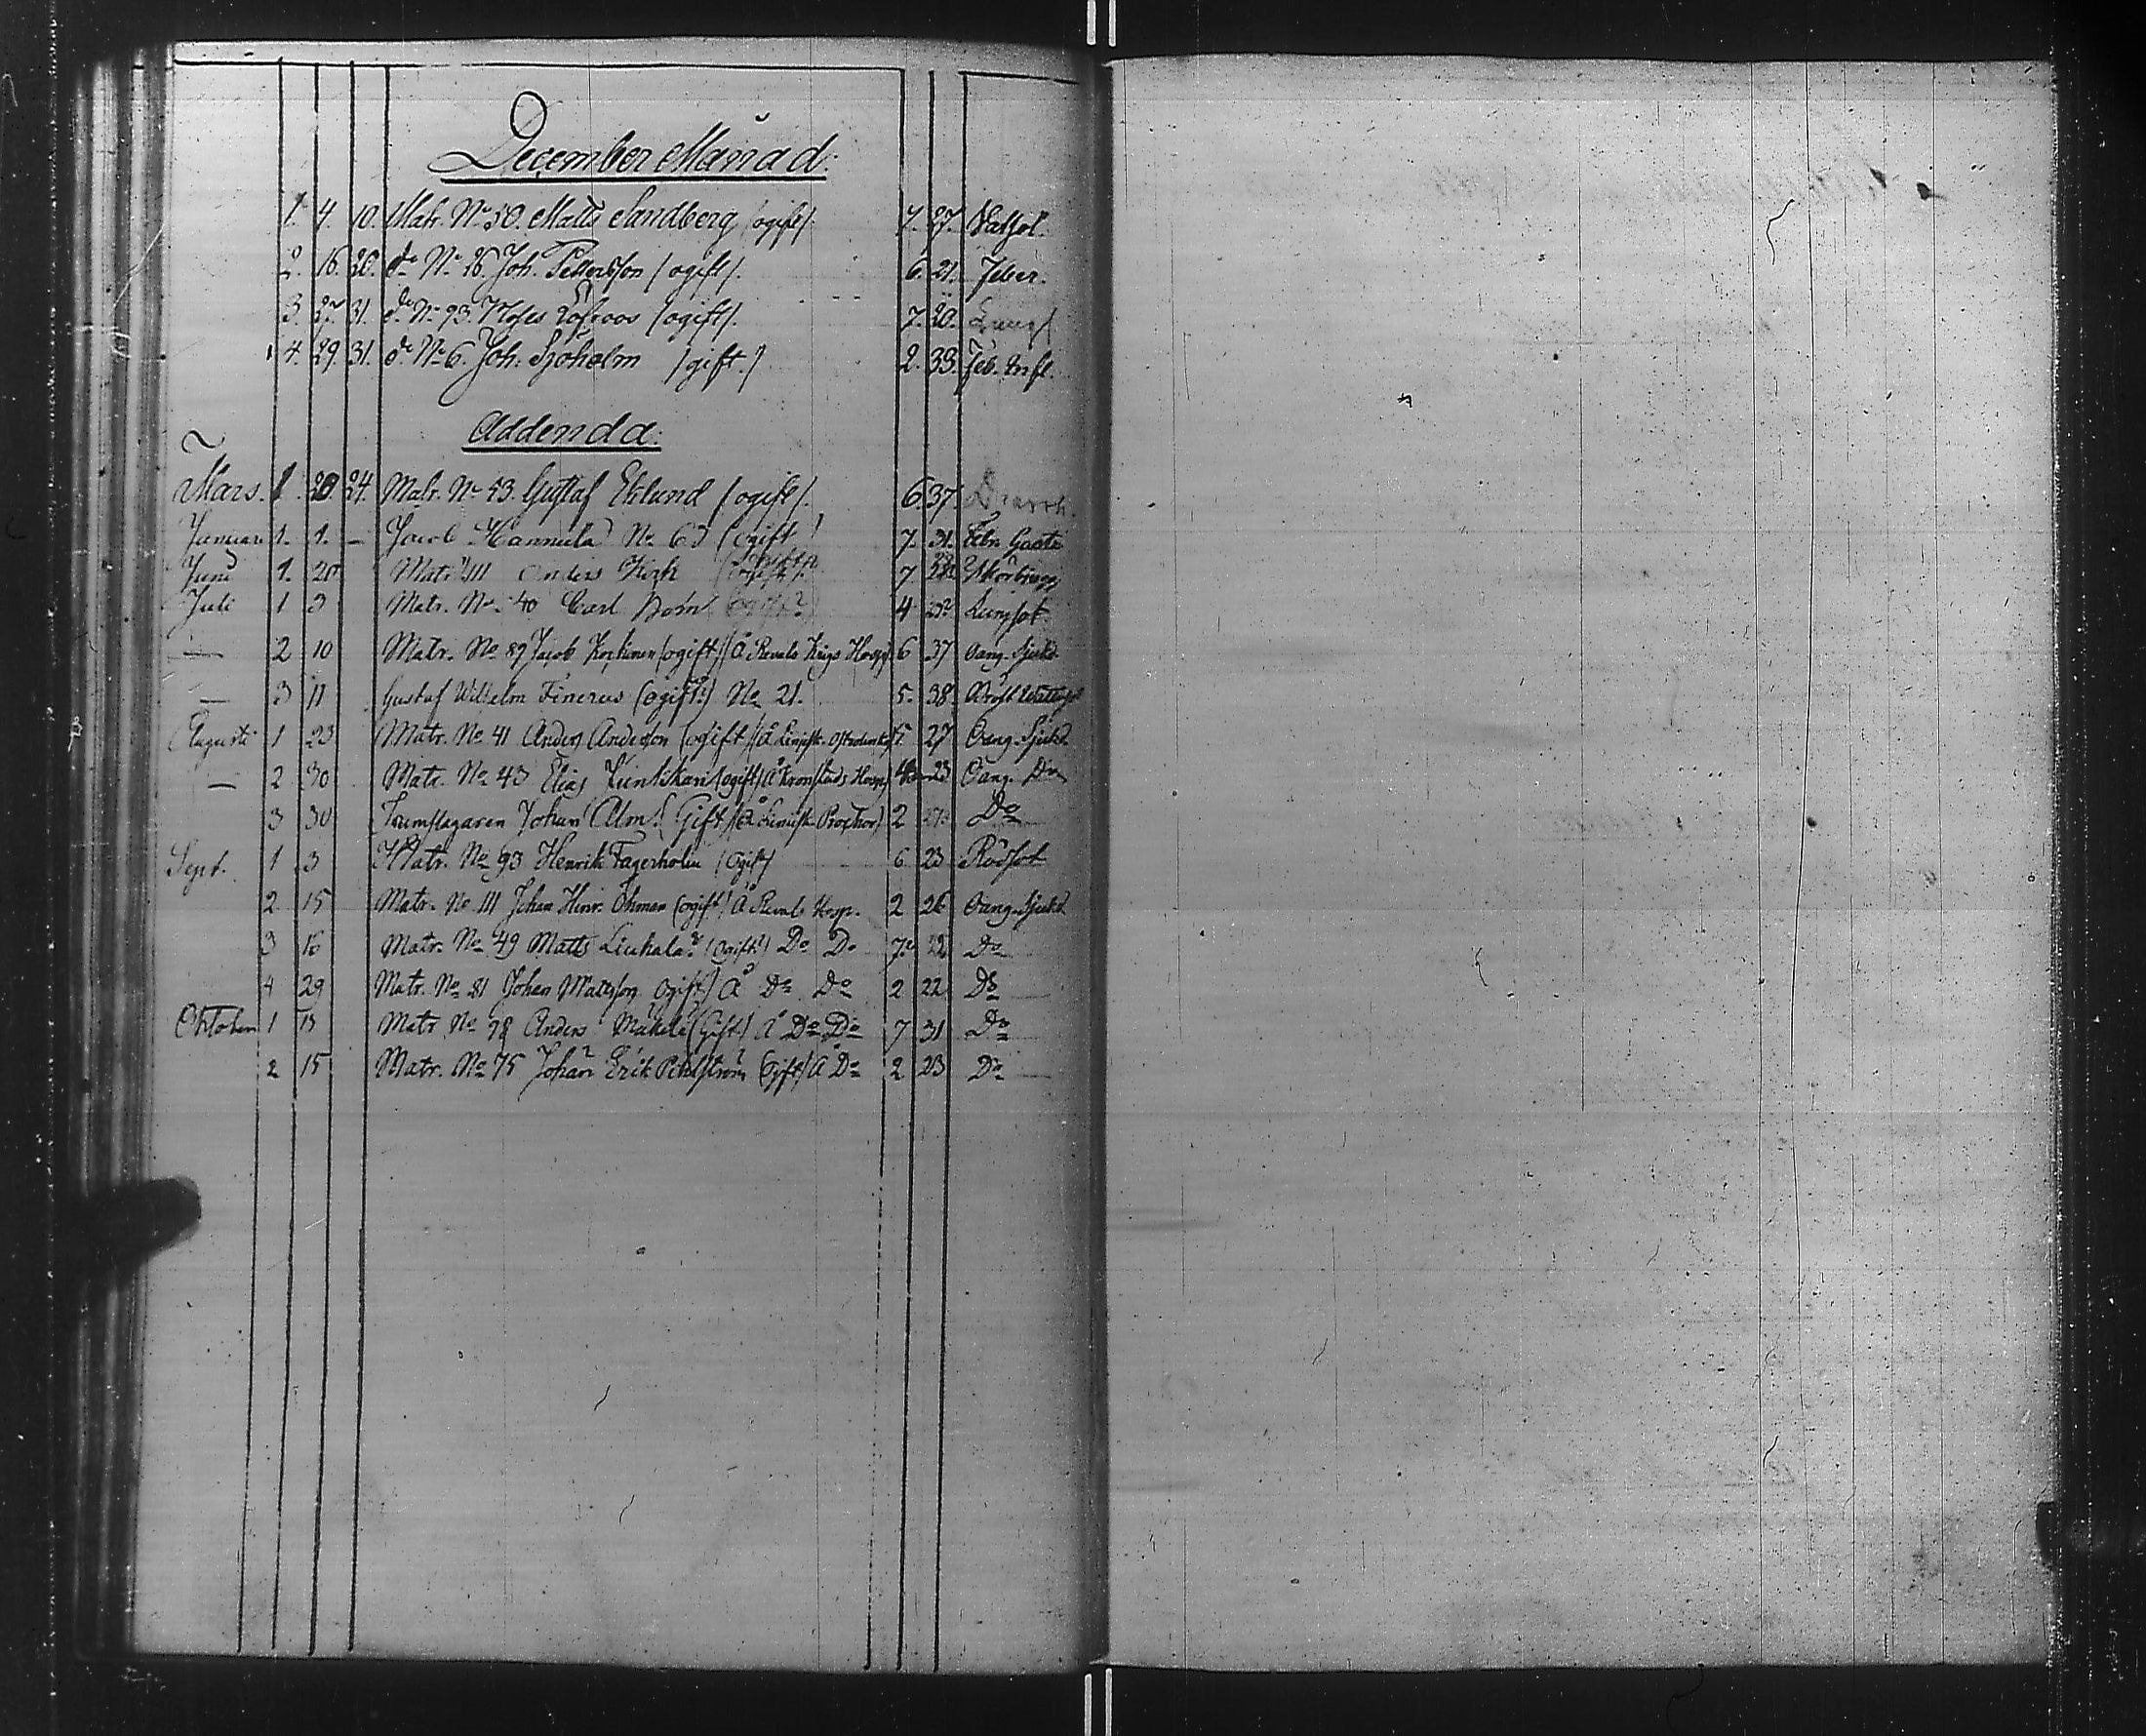 December Månad:
1. 4. 10. Matr. No 50. Matts Sandberg (ogift). 7. 27. Vatsot.
2. 16. 20. do No 26. Joh. Pettersson (ogift). 6. 21. Feber.
3. 27. 31. do No 93. Moses Löfroos (ogift). 7. 20. Lungs
4. 29. 31. do No 6. Joh. Sjöholm (gift.) 2. 33. Feb. Infl.
Addenda:
Mars. 1. 20 24. Matr. No 53. Gustaf Eklund (ogift). 6. 37.
Januari 1. 1. – Jacob Hannula No 63 (ogift) 7. 31. Febr. Gastr
Juni 1. 20 Matr. 111 Anders Kirk 7. Skörbjugg
Juli 1 3 Matr. No 40 Carl Born 4 Lungsot
— 2 10 Matr. No 89 Jacob (ogift) (å Revals Krigs Hosp.) 6 37 Oang. Sjukd
— 3 11 Gustaf Wilhelm Finerus (ogift) No 21. 5. 38. Bröst Wattusot
Augusti 1 23 Matr. No 41 Anders Anderson (ogift) (å 5 27 Oang. Sjukd
— 2 30 Matr. No 43 Elias (ogift) å Kronstads Hosp. 4 23 Oang. Do
3 30 Trumslagaren Johan Alm (Gift) 2 Do
Sept. 1 3 Matr. No 93 Henrik Fagerholm (Ogift) 6 23 Rödsot
2 15 Matr. No 111 Johan Hinr. Öhman (ogift) å Revals Hosp. 2 26 Oang. Sjukd
3 16 Matr. No 49 Matts Liukala (ogift) Do Do 7 22 Do
4 29 Matr. No 81 Johan Mattsson Ogift) å Do Do 2 22 Do
Oktober 1 13 Matr No 98 Anders Mäkelä (Gift) å Do Do 7 31 Do
2 15 Matr. No 75 Johan Erik Pihlström (Gift) å Do 2 23 Do